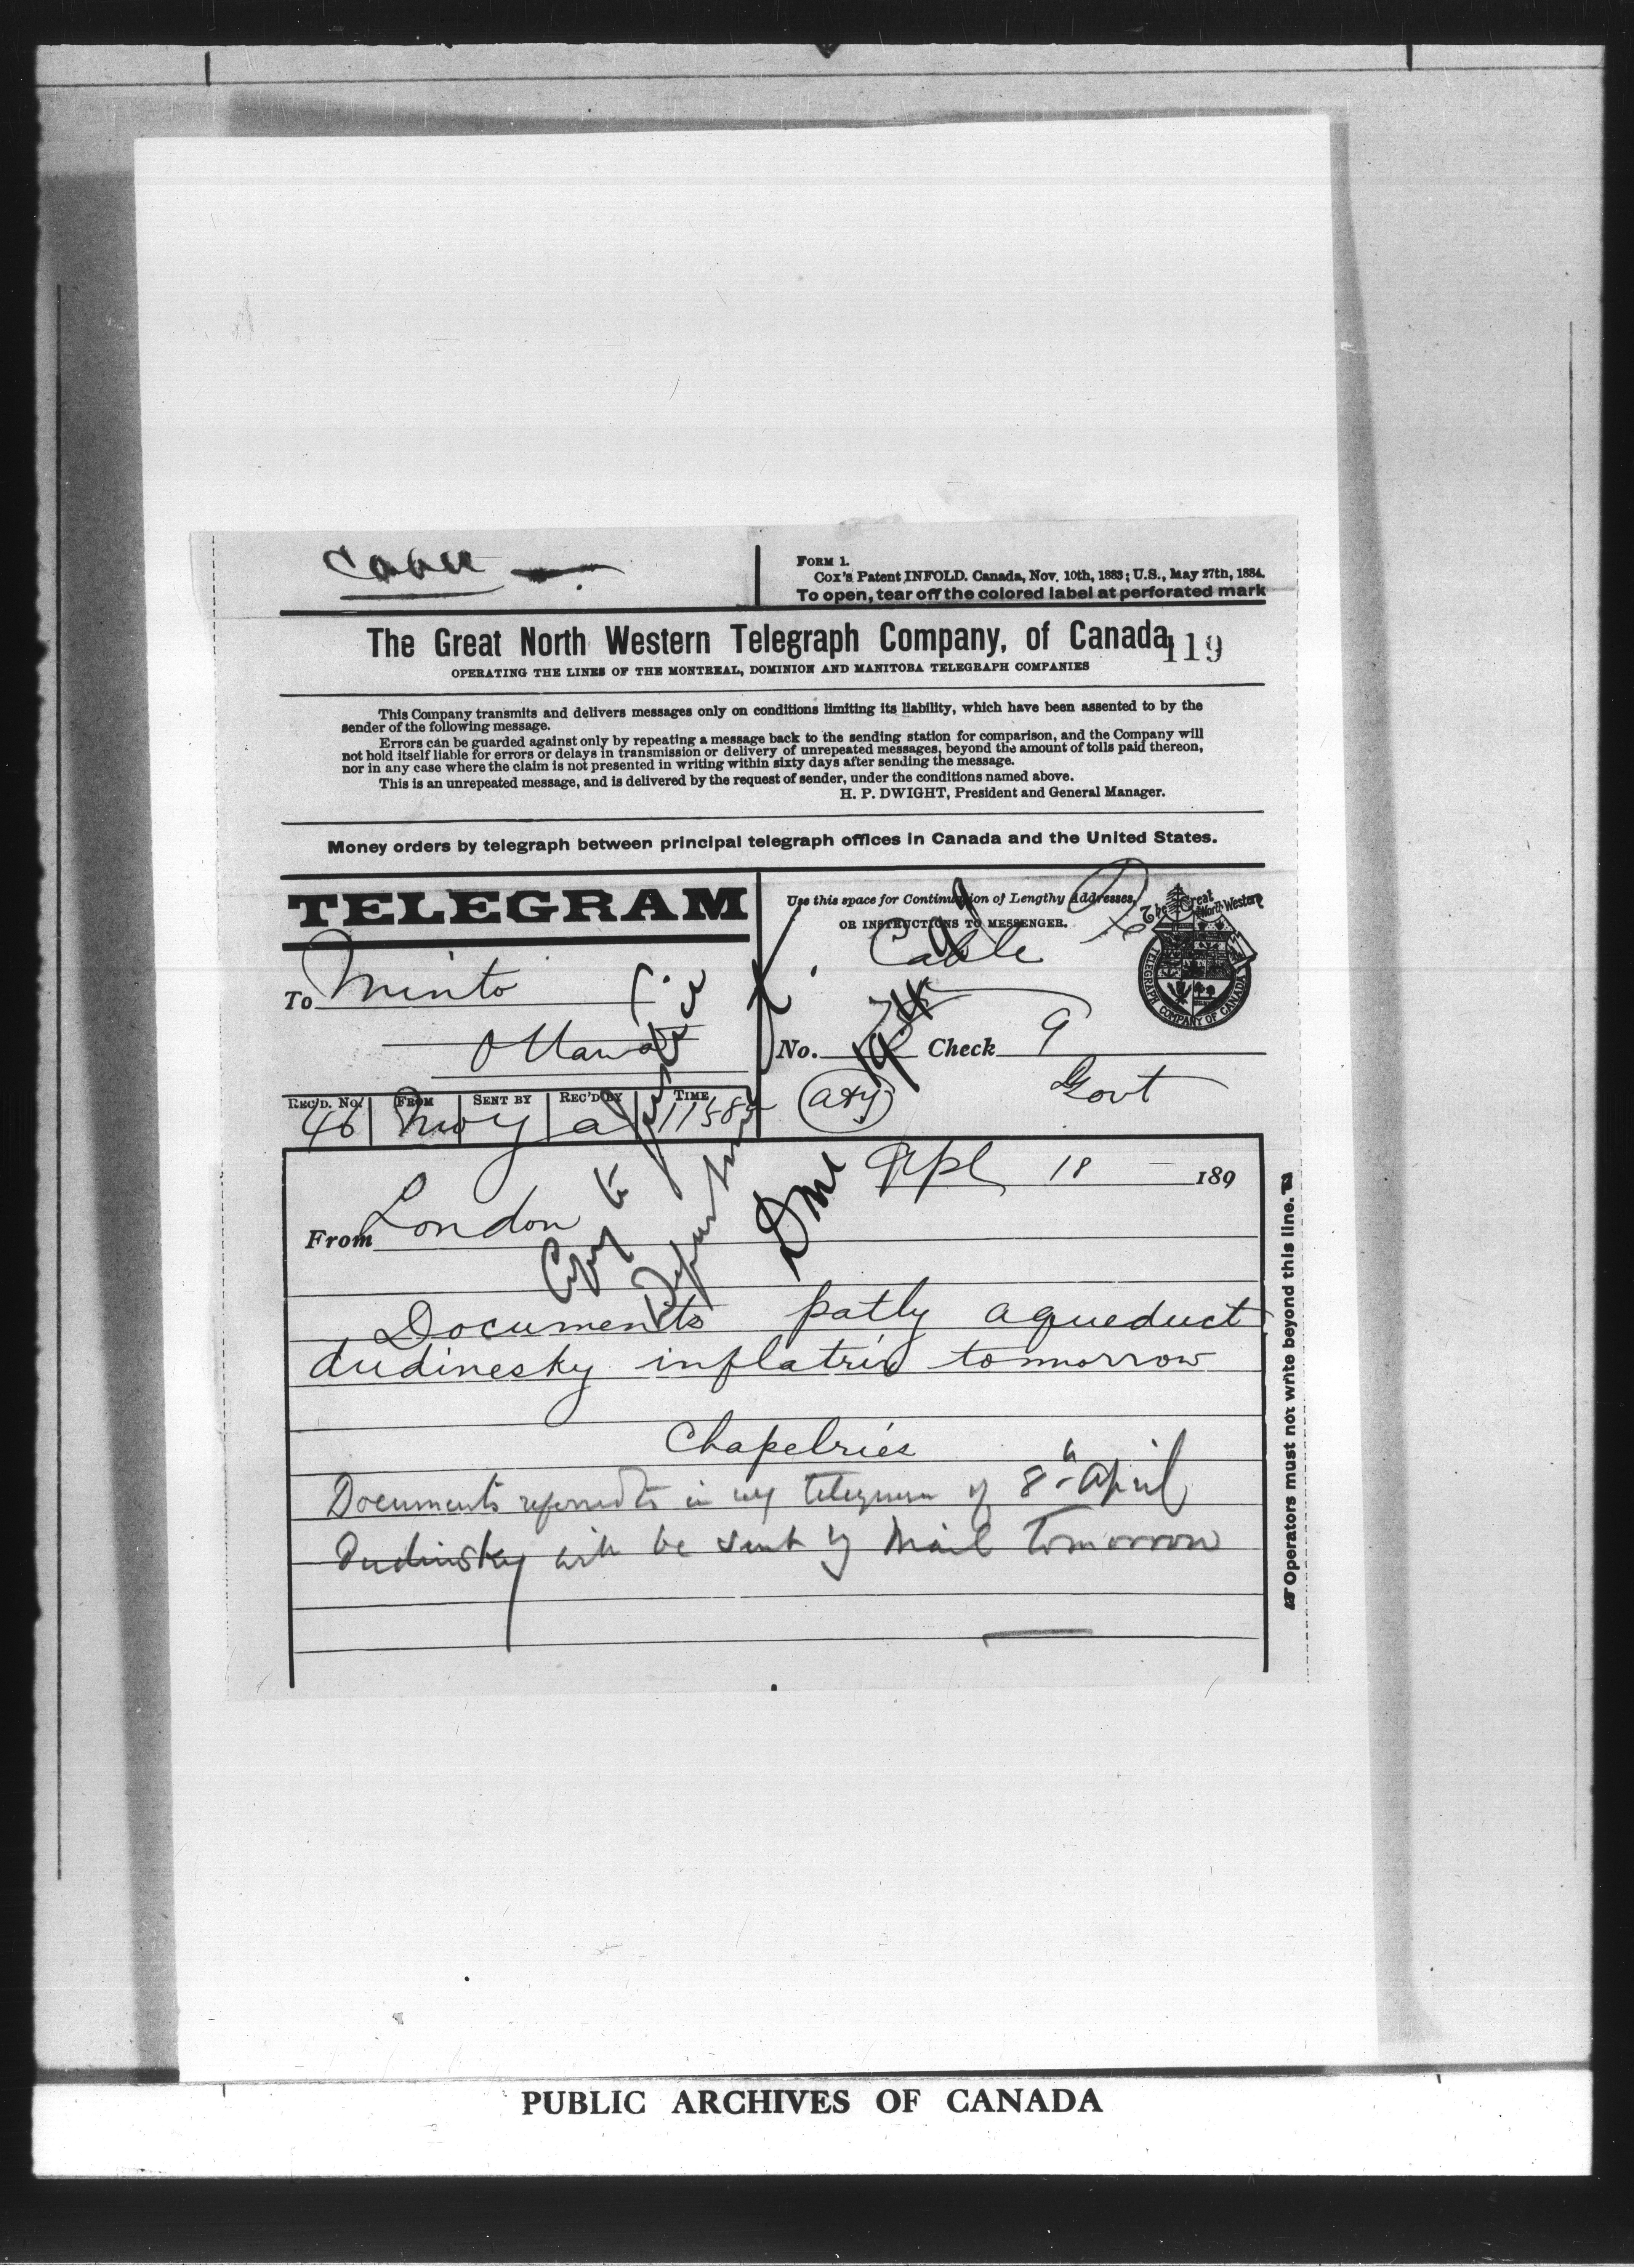 Cable
FORM 1.
Cox's Patent INFOLD. Canada, Nov. 10th, 1883; U.S., May 27th, 1884.
To open, tear off the colored label at perforated mark
The Great North Western Telegraph Company, of Canada
119
OPERATING THE LINES OF THE MONTREAL, DOMINION AND MANITOBA TELEGRAPH COMPANIES
This Company transmits and delivers messages only on conditions limiting its liability, which have been assented to by the
sender of the following message.
Errors can be guarded against only by repeating a message back to the sending station for comparison, and the Company will
not hold itself liable for errors or delays in transmission or delivery of unrepeated messages, beyond the amount of tolls paid thereon,
nor in any case where the claim is not presented in writing within sixty days after sending the message.
This is an unrepeated message, and is delivered by the request of sender, under the conditions named above.
H. P. DWIGHT, President and General Manager.
Money orders by telegraph between principal telegraph offices in Canada and the United States.
TELEGRAM
Use this space for Continuation of Lengthy Addresses,
OR INSTRUCTIONS TO MESSENGER.
The Great North Western
TELEGRAPH COMPANY OF CANADA
Cable
To Minto
Ottawa
No. Check 9
Govt
REC'D. No. FROM SENT BY REC'D BY TIME
46 a 1158
Apl 18 189
From London
Copy to Justice
Department
Documents patly aqueduct
dudinesky inflatrix tomorrow
Chapelries
Documents referred to in my telegram of 8th April
Dudinsky will be sent by Mail Tomorrow
Operators must not write beyond this line.
PUBLIC ARCHIVES OF CANADA